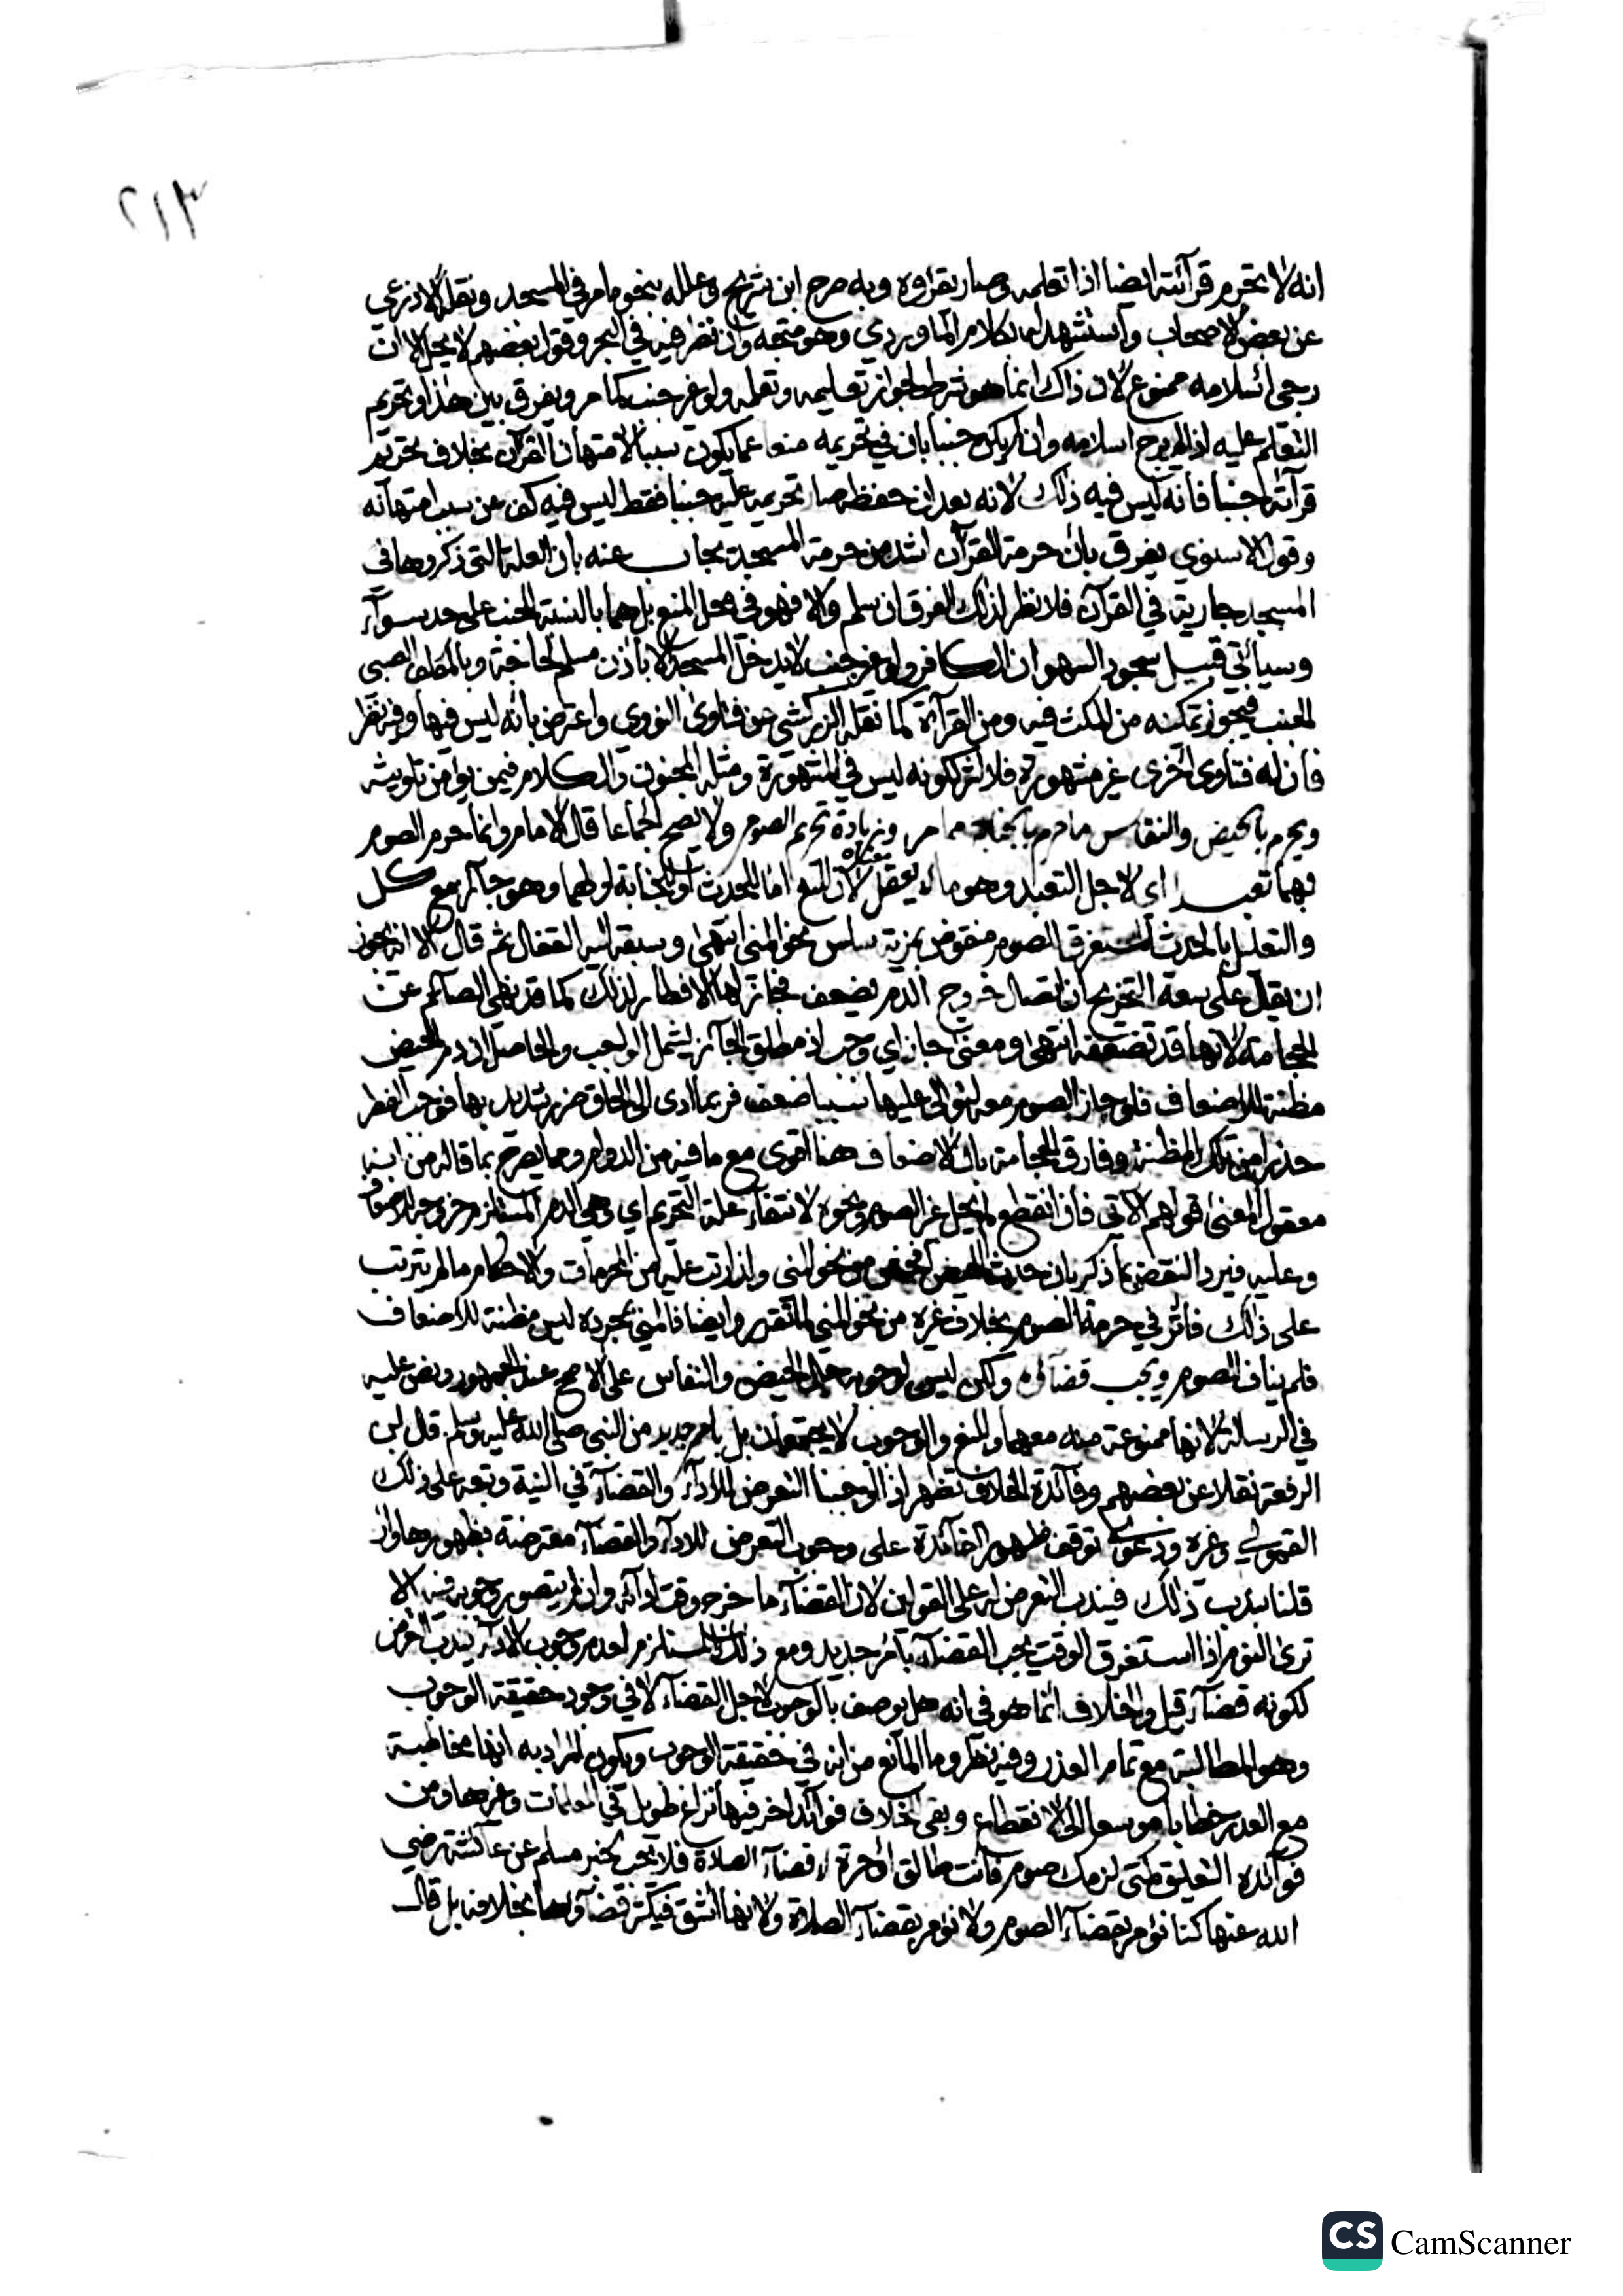 ٢١٣
انه لا يحرم قرآئته ايضا اذا تعلمه وصار يقرؤه وبه صرح ابن شريح وعلله بنحو ما مر في المسجد ونقله الاذرعي
عن بعض الاصحاب واستشهد له بكلام الماوردي وهو متجه وان نظر فيه في البحر وقول بعضهم لا يحل الا ان
رجي اسلامه ممنوع لان ذاك انما هو شرط لجواز تعليمه وتعلمه ولو غير جنب كما مر ويفرق بين هذا وتحريم
التعلم عليه اذا لم يرج اسلامه وان لم يكن جنبا بان في تحريمه منعا عما يكون سببا لامتهان القرآن بخلاف تحريم
قرآئته جنبا فانه ليس فيه ذلك لانه بعد ان حفظه صار تحريمه عليه جنبا فقط ليس فيه كف عن سبب امتهانه
وقول الاسنوي يفرق بان حرمة القرآن اشد من حرمة المسجد يجاب عنه بان العلة التي ذكروها في
المسجد جارية في القرآن فلا نظر لذلك الفرق ان سلم والا فهو في محل المنع بل هما بالنسبة للجنب على حد سوآء
وسيأتي قبيل سجود السهو ان الكافر ولو غير جنب لا يدخل المسجد الا باذن مسلم لحاجة وبالمكلف الصبي
الجنب فيجوز تمكينه من المكث فيه ومن القرآءة كما نقله الزركشي عن فتاوى النووي واعترض بانه ليس فيها وفيه نظر
فان له فتاوى اخرى غير مشهورة فلا اثر لكونه ليس في المشهورة ومثله المجنون والكلام فيمن يؤمن تلويثه
ويحرم بالحيض والنفاس ما حرم بالجنابة مما مر وزيادة تحريم الصوم ولا يصح اجماعا قال الامام وانما حرم الصوم
بهما تعبدا اى لاجل التعبد وهو ما لم يعقل معناه لان المنع اما للحدث او للجنابة او لهما وهو جآئز مع كل
والتعليل بالحدث المستغرق الصوم منقوض بمن به سلس نحو المني انتهى وسبقه اليه القفال ثم قال الا انه يجوز
ان يقال على سعة التخريج ان اتصال خروج الدم يضعف فجاز لها الافطار لذلك كما قد نهى الصآئم عن
الحجامة لانها قد تضعفه انتهى ومعنى جاز اي وجب اذ مطلق الجآئز يشمل الواجب والحاصل ان دم الحيض
مظنة للاضعاف فلو جاز الصوم معه لتوالى عليها سببا ضعف فربما ادى الى الحاق ضرر شديد بها فوجب الفطر
حذرا من تلك المظنة وفارق الحجامة بان الاضعاف هنا اقوى مع ما فيه من الدوام ومما يصرح بما قاله من انه
معقول المعنى قولهم الآتي فان انقطع لم يحل غير الصوم ونحوه لانتفآء علة التحريم اي وهي الدم المستلزم خروجه للاضعاف
وعليه فيرد النقض بما ذكر بان حدث الحيض افحش من نحو المني ولذا رتب عليه من المحرمات والاحكام ما لم يترتب
على ذلك فاثر في حرمة الصوم بخلاف غيره من نحو المني لما تقرر وايضا فالمني بمجرده ليس مظنة للاضعاف
فلم يناف الصوم ويجب قضآئه ولكن ليس لوجوبه حال الحيض والنفاس على الاصح عند الجمهور ونص عليه
في الرسالة لانها ممنوعة منه معهما والمنع والوجوب لا يجتمعان بل بامر جديد من النبي صلى الله عليه وسلم قال ابن
الرفعة نقلا عن بعضهم وفآئدة الخلاف تظهر اذا اوجبنا التعرض للادآء والقضآء في النية وتبعه على ذلك
القمولي وغيره ودعوى توقف ظهور الفآئدة على وجوب التعرض للادآء والقضآء معترضة بظهورها وان
قلنا بندب ذلك فيندب التعرض له على القولين لان القضآء ما خرج وقت ادآئه وان لم يتصور وجوبه فيه الا
ترى النوم اذا استغرق الوقت يجب القضآء بامر جديد ومع ذلك المستلزم لعدم وجوب الادآء يندب التعرض
لكونه قضآء قيل والخلاف انما هو في انه هل يوصف بالوجوب لاجل القضآء لا في وجود حقيقة الوجوب
وهو المطالبة مع تمام العذر وفيه نظر وما المانع من انه في حقيقة الوجوب ويكون المراد به انها مخاطبة
مع العذر خطابا موسعا الى الانقطاع وبقى للخلاف فوآئد اخر فيها نزاع طويل في المعلمات وغيرها ومن
فوآئده التعليق كمتى لزمك صوم فانت طالق او حرة لا قضآء الصلاة فلا يجب لخبر مسلم عن عآئشة رضي
الله عنها كنا نؤمر بقضآء الصوم ولا نؤمر بقضآء الصلاة ولانها اشق فيكثر قضآؤها بخلافه بل قال
CS CamScanner